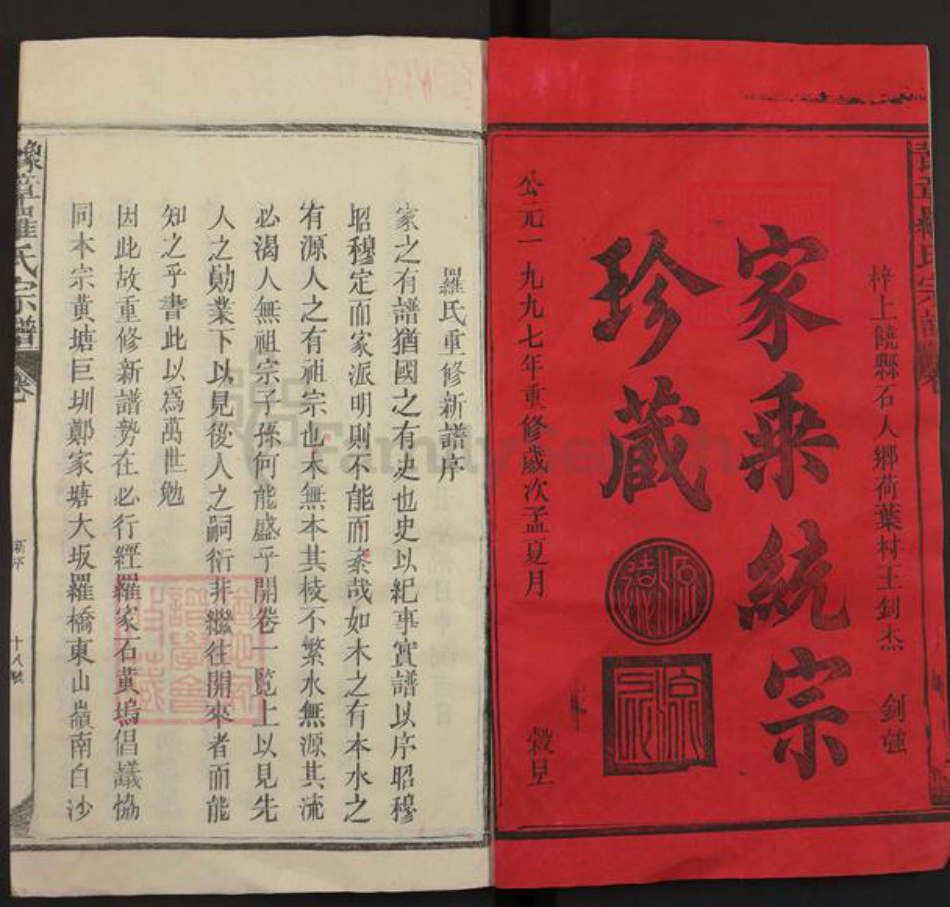 梓上饒縣石人鄉荷葉村王釗杰 釗強
家乘統宗
珍藏
公元一九九七年重修歲次孟夏月 穀旦
羅氏重修新譜序
家之有譜猶國之有史也史以紀事實譜以序昭穆
昭穆定而家派明則不能而紊哉如木之有本水之
有源人之有祖宗也木無本其棱不繁水無源其流
必渴人無祖宗子孫何能盛乎開卷一覽上以見先
人之勛業下以見後人之嗣衍非繼往開來者而能
知之乎書此以為萬世勉
因此故重修新譜勢在必行經羅家石黃塢倡議協
同本宗黃塘巨圳鄭家塘大坂羅橋東山嶺南白沙
豫章羅氏宗譜 卷
新序
十八號
FamilySearch